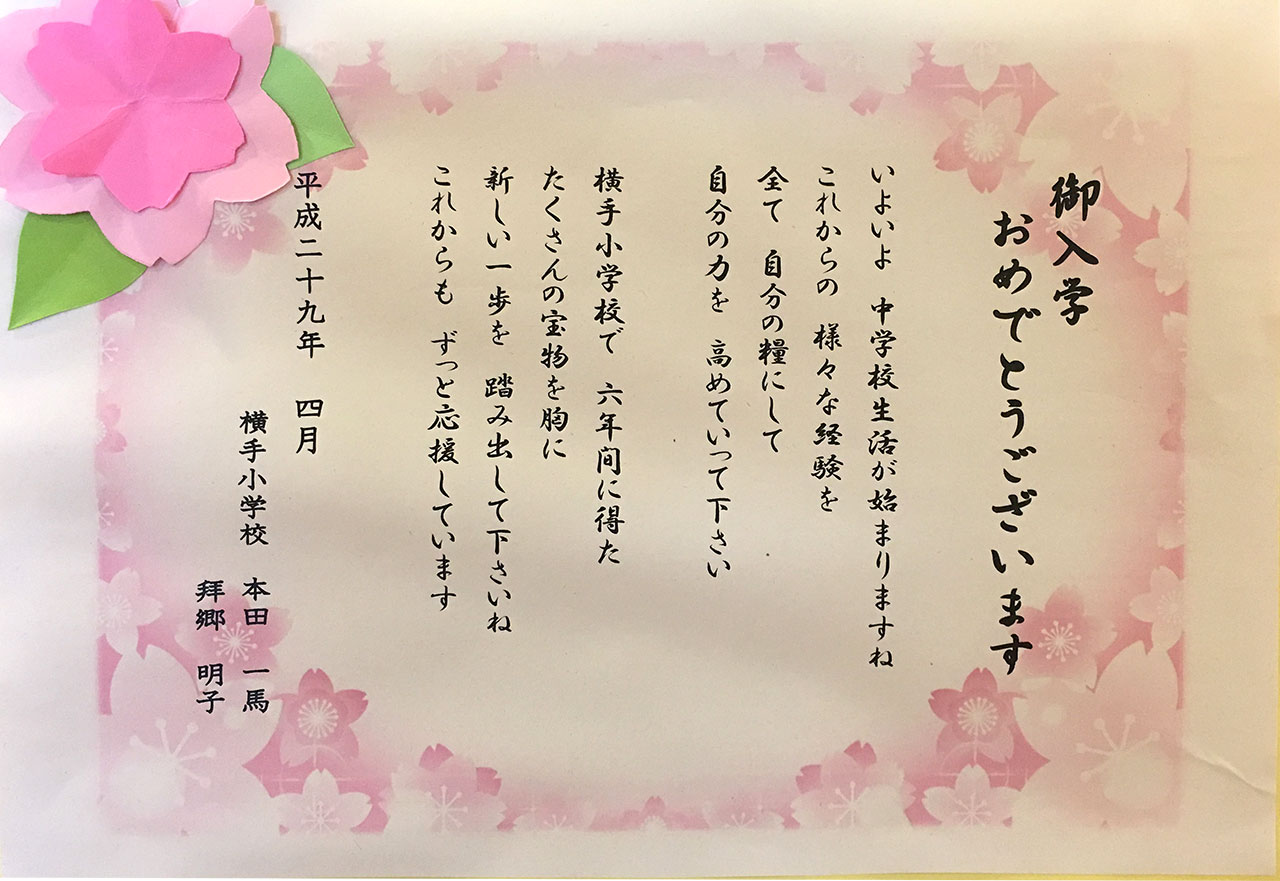 御入学
おめでとうございます
いよいよ 中学校生活が始まりますね
これからの 様々な経験を
全て 自分の糧にして
自分の力を 高めていって下さい
横手小学校で 六年間に得た
たくさんの宝物を胸に
新しい一歩を 踏み出して下さいね
これからも ずっと応援しています
平成二十九年 四月
横手小学校 本田 一馬
拝郷 明子